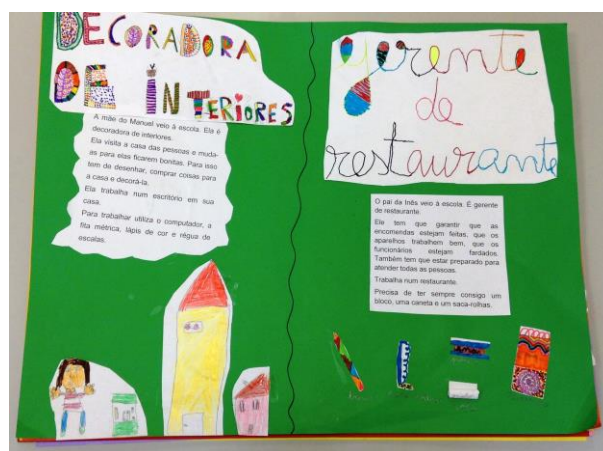 DECORADORA
DE INTERIORES
A mãe do Manuel veio à escola. Ela é
decoradora de interiores.
Ela visita a casa das pessoas e muda-
as para elas ficarem bonitas. Para isso
tem de desenhar, comprar coisas para
a casa e decorá-la.
Ela trabalha num escritório em sua
casa.
Para trabalhar utiliza o computador, a
fita métrica, lápis de cor e régua de
escalas.
gerente
de
restaurante
O pai da Inês veio à escola. É gerente
de restaurante.
Ele tem que garantir que as
encomendas estejam feitas, que os
aparelhos trabalhem bem, que os
funcionários estejam fardados.
Também tem que estar preparado para
atender todas as pessoas.
Trabalha num restaurante.
Precisa de ter sempre consigo um
bloco, uma caneta e um saca-rolhas.